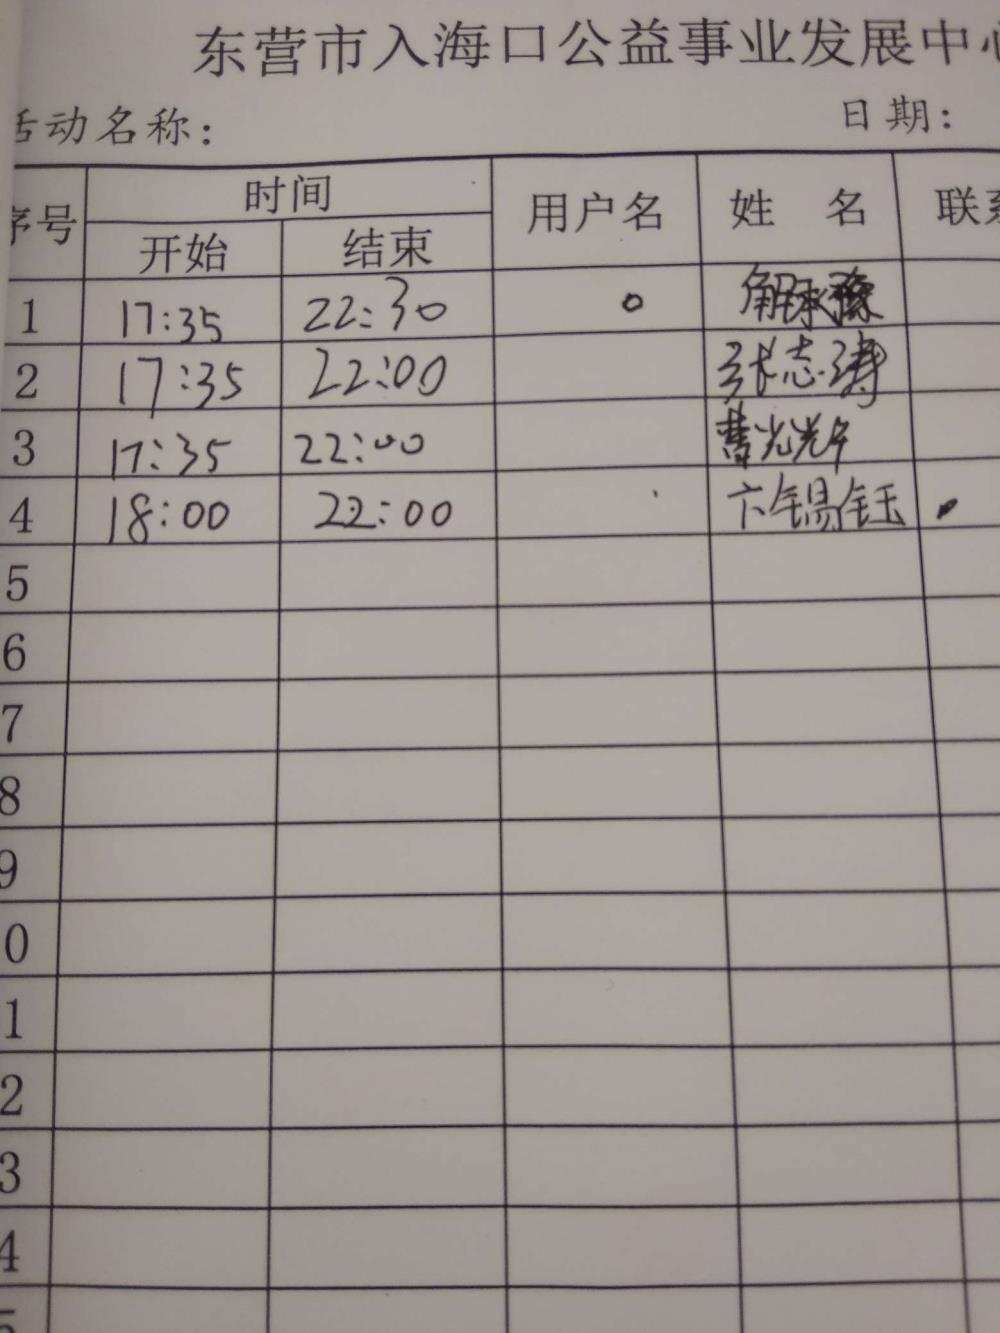 东营市入海口公益事业发展中心
活动名称： 日期：
序号 时间 用户名 姓 名 联系
开始 结束
1 17:35 22:30
2 17:35 22:00 张志涛
3 17:35 22:00 曹光辉
4 18:00 22:00 卞锡钰
5
6
7
8
9
0
1
2
3
4
5